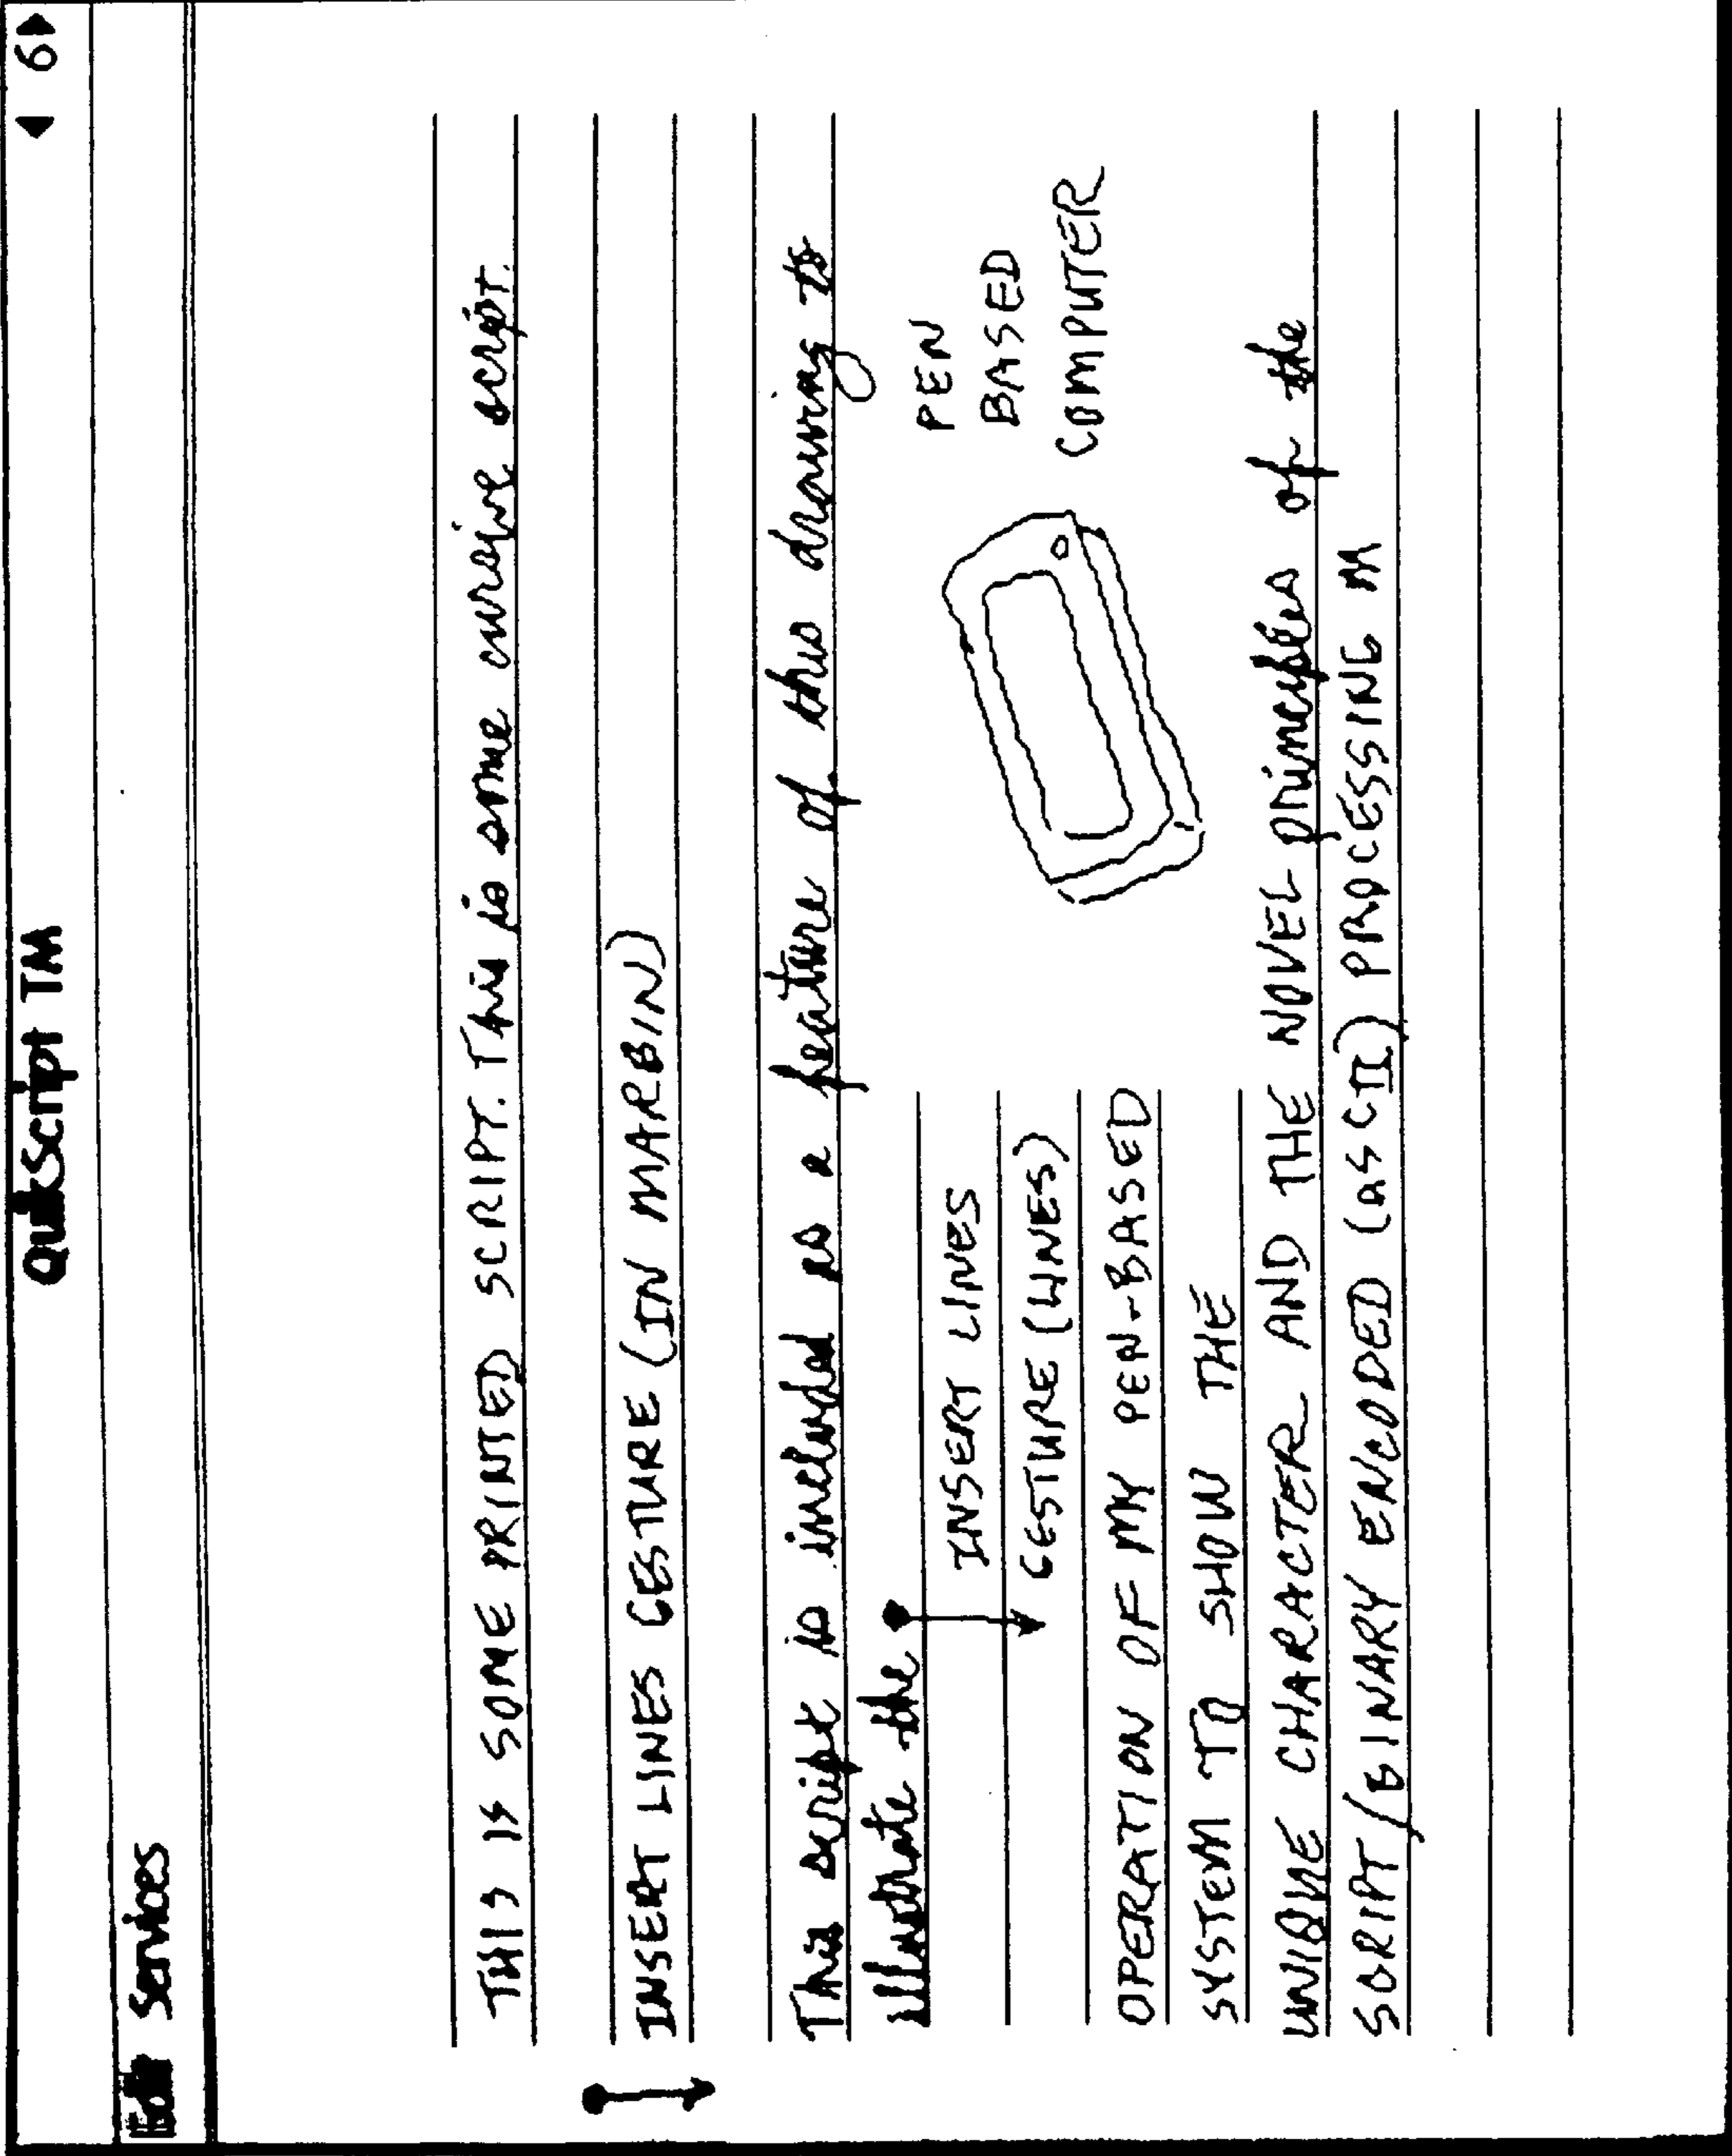 QuikScript TM
◀ 6▶
Edit Services
THIS IS SOME PRINTED SCRIPT. This is some cursive script.
INSERT LINES GESTURE (IN MARGIN)
This script is included as a feature of this drawing to
illustrate the
INSERT LINES
GESTURE (LINES)
PEN
BASED
COMPUTER
OPERATION OF MY PEN-BASED
SYSTEM TO SHOW THE
UNIQUE CHARACTER AND THE NOVEL principles of the
SCRIPT/BINARY ENCODED (ASCII) PROCESSING M